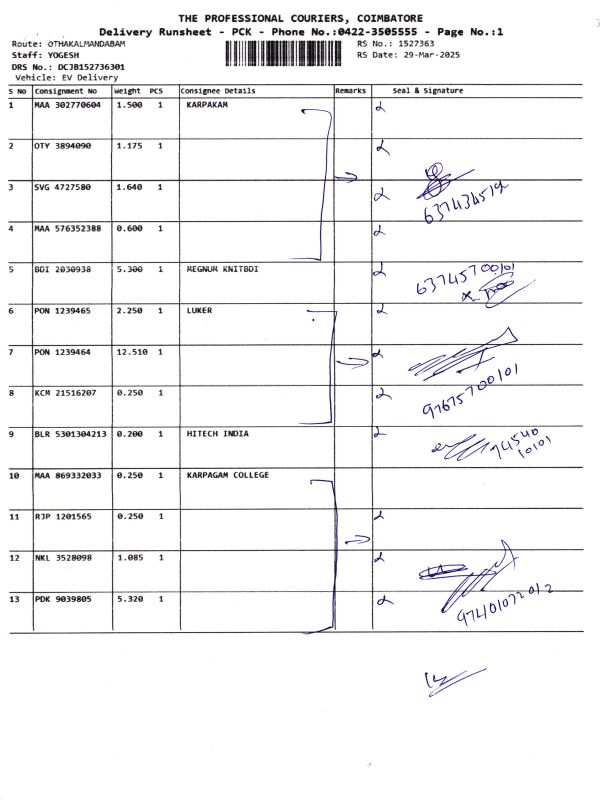 THE PROFESSIONAL COURIERS, COIMBATORE
Delivery Runsheet - PCK - Phone No.:0422-3505555 - Page No.:1
Route: OTHAKALMANDABAM RS No.: 1527363
Staff: YOGESH RS Date: 29-Mar-2025
DRS No.: DCJB152736301
Vehicle: EV Delivery
S No Consignment No Weight PCS Consignee Details Remarks Seal & Signature
1 MAA 302770604 1.500 1 KARPAKAM
2 OTY 3894090 1.175 1
3 SVG 4727580 1.640 1
637434519
4 MAA 576352388 0.600 1
5 BDI 2030938 5.300 1 MEGNUM KNITBDI 63745700101
6 PON 1239465 2.250 1 LUKER
7 PON 1239464 12.510 1
8 KCM 21516207 0.250 1 97675700101
9 BLR 5301304213 0.200 1 HITECH INDIA 94540
10101
10 MAA 869332033 0.250 1 KARPAGAM COLLEGE
11 RJP 1201565 0.250 1
12 NKL 3528098 1.085 1
13 PDK 9039805 5.320 1 97401072012